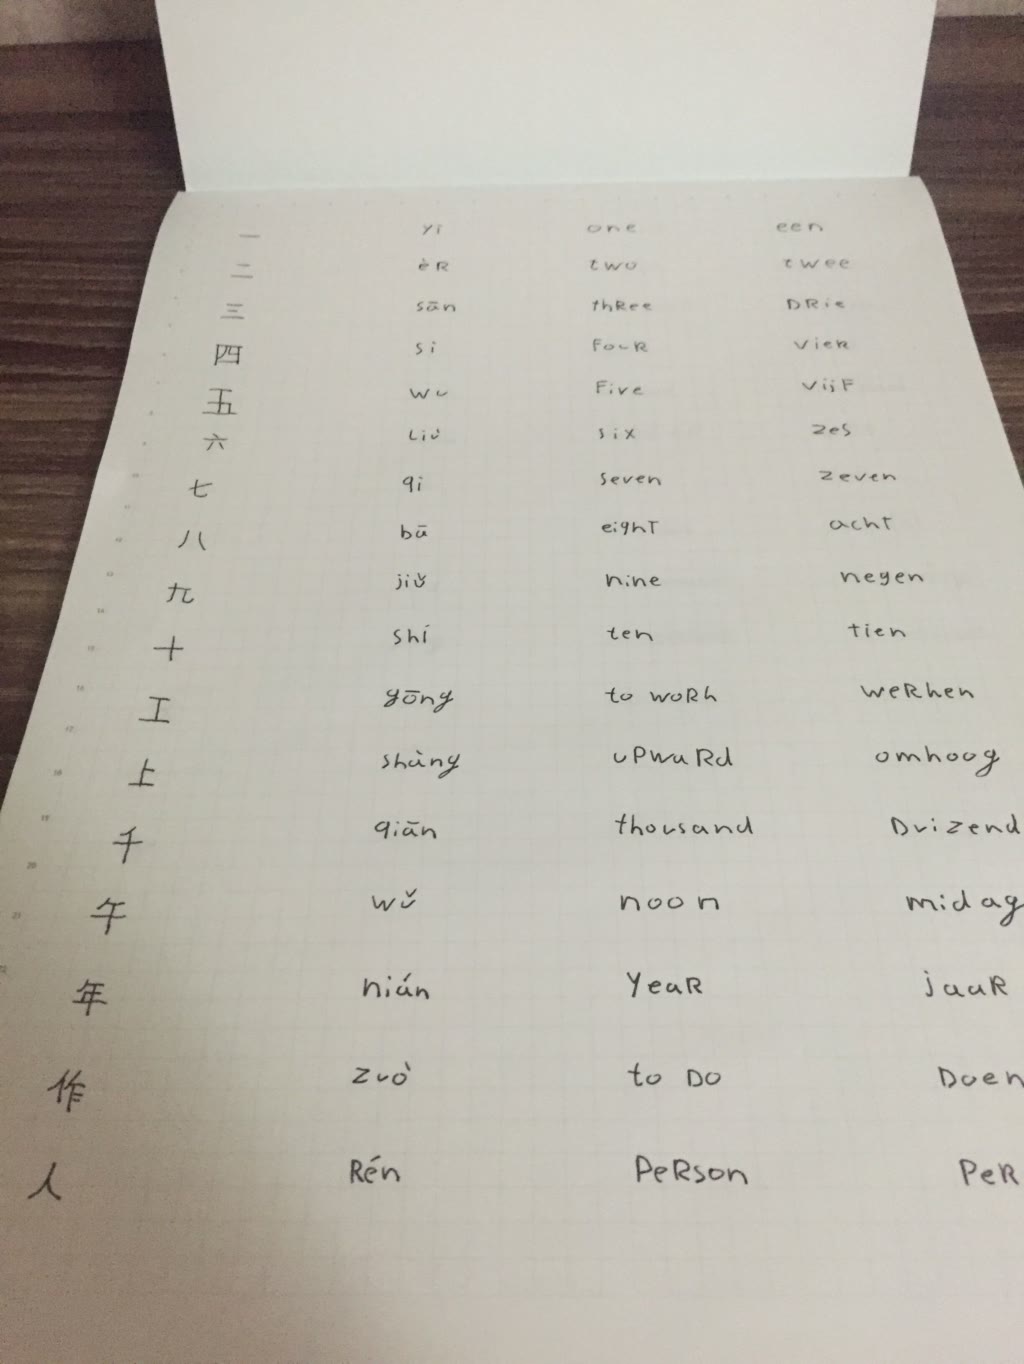 一 yi one een
二 èR two twee
三 sān thRee DRie
四 si FouR vieR
五 wu Five vijF
六 Liù six zes
七 qi seven zeven
八 bā eighT achT
九 jiǔ nine negen
十 shí ten tien
工 gōng to woRk weRken
上 shàng uPwaRd omhoog
千 qiān thousand Duizend
午 wǔ noon midag
年 nián YeaR jaaR
作 zuò to Do Doen
人 Rén PeRson PeR